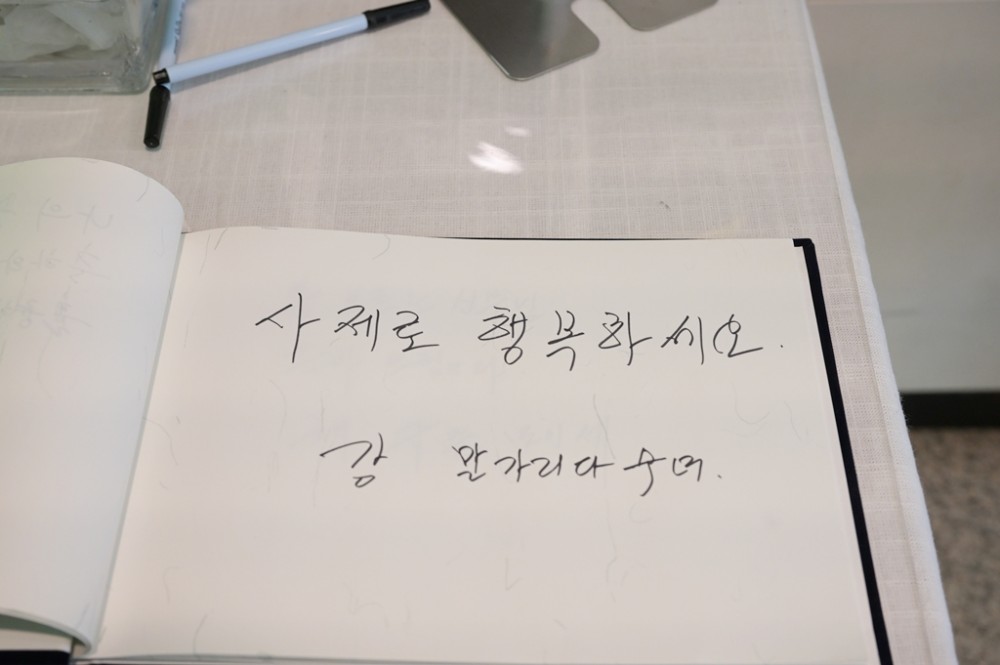 사제로 행복하세요.
강 말가리다 수녀.